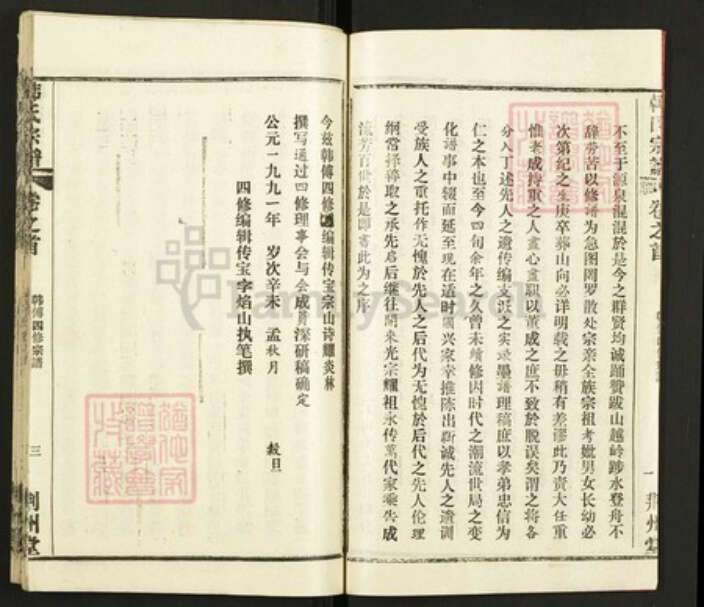 韩氏宗谱 卷之首
不至于源泉混混於是今之群贤均诚踊赞跋山越岭涉水登舟不
辞劳苦以修谱为急图网罗散处宗亲全族宗祖考妣男女长幼必
次第纪之生庚卒葬山向必详明载之毋稍有差谬此乃责大任重
惟老成持重之人尽心尽职以董成之庶不致於脱误矣谓之将各
分人丁述先人之遗传编支派之实录墨谱理稿庶以孝弟忠信为
仁之本也至今四旬余年之久曾未续修因时代之潮流世局之变
化谱事中辍而延至现在适时国兴家幸推陈出新诚先人之遗训
受族人之重托作无愧於先人之后代为无愧於后代之先人伦理
纲常择稡取之承先启后继往開来光宗耀祖永传萬代家乘告成
流芳百世於是即書此为之序
一 荆州堂
今兹韩傅四修 编辑传宝宗山诗耀炎林
撰写通过四修理事会与会成員深研稿确定
公元一九九一年 岁次辛未 孟秋月 穀旦
四修编辑传宝字焰山执笔撰
韩氏宗谱
卷之首
韩傅四修宗谱
三
荆州堂
FamilySearch